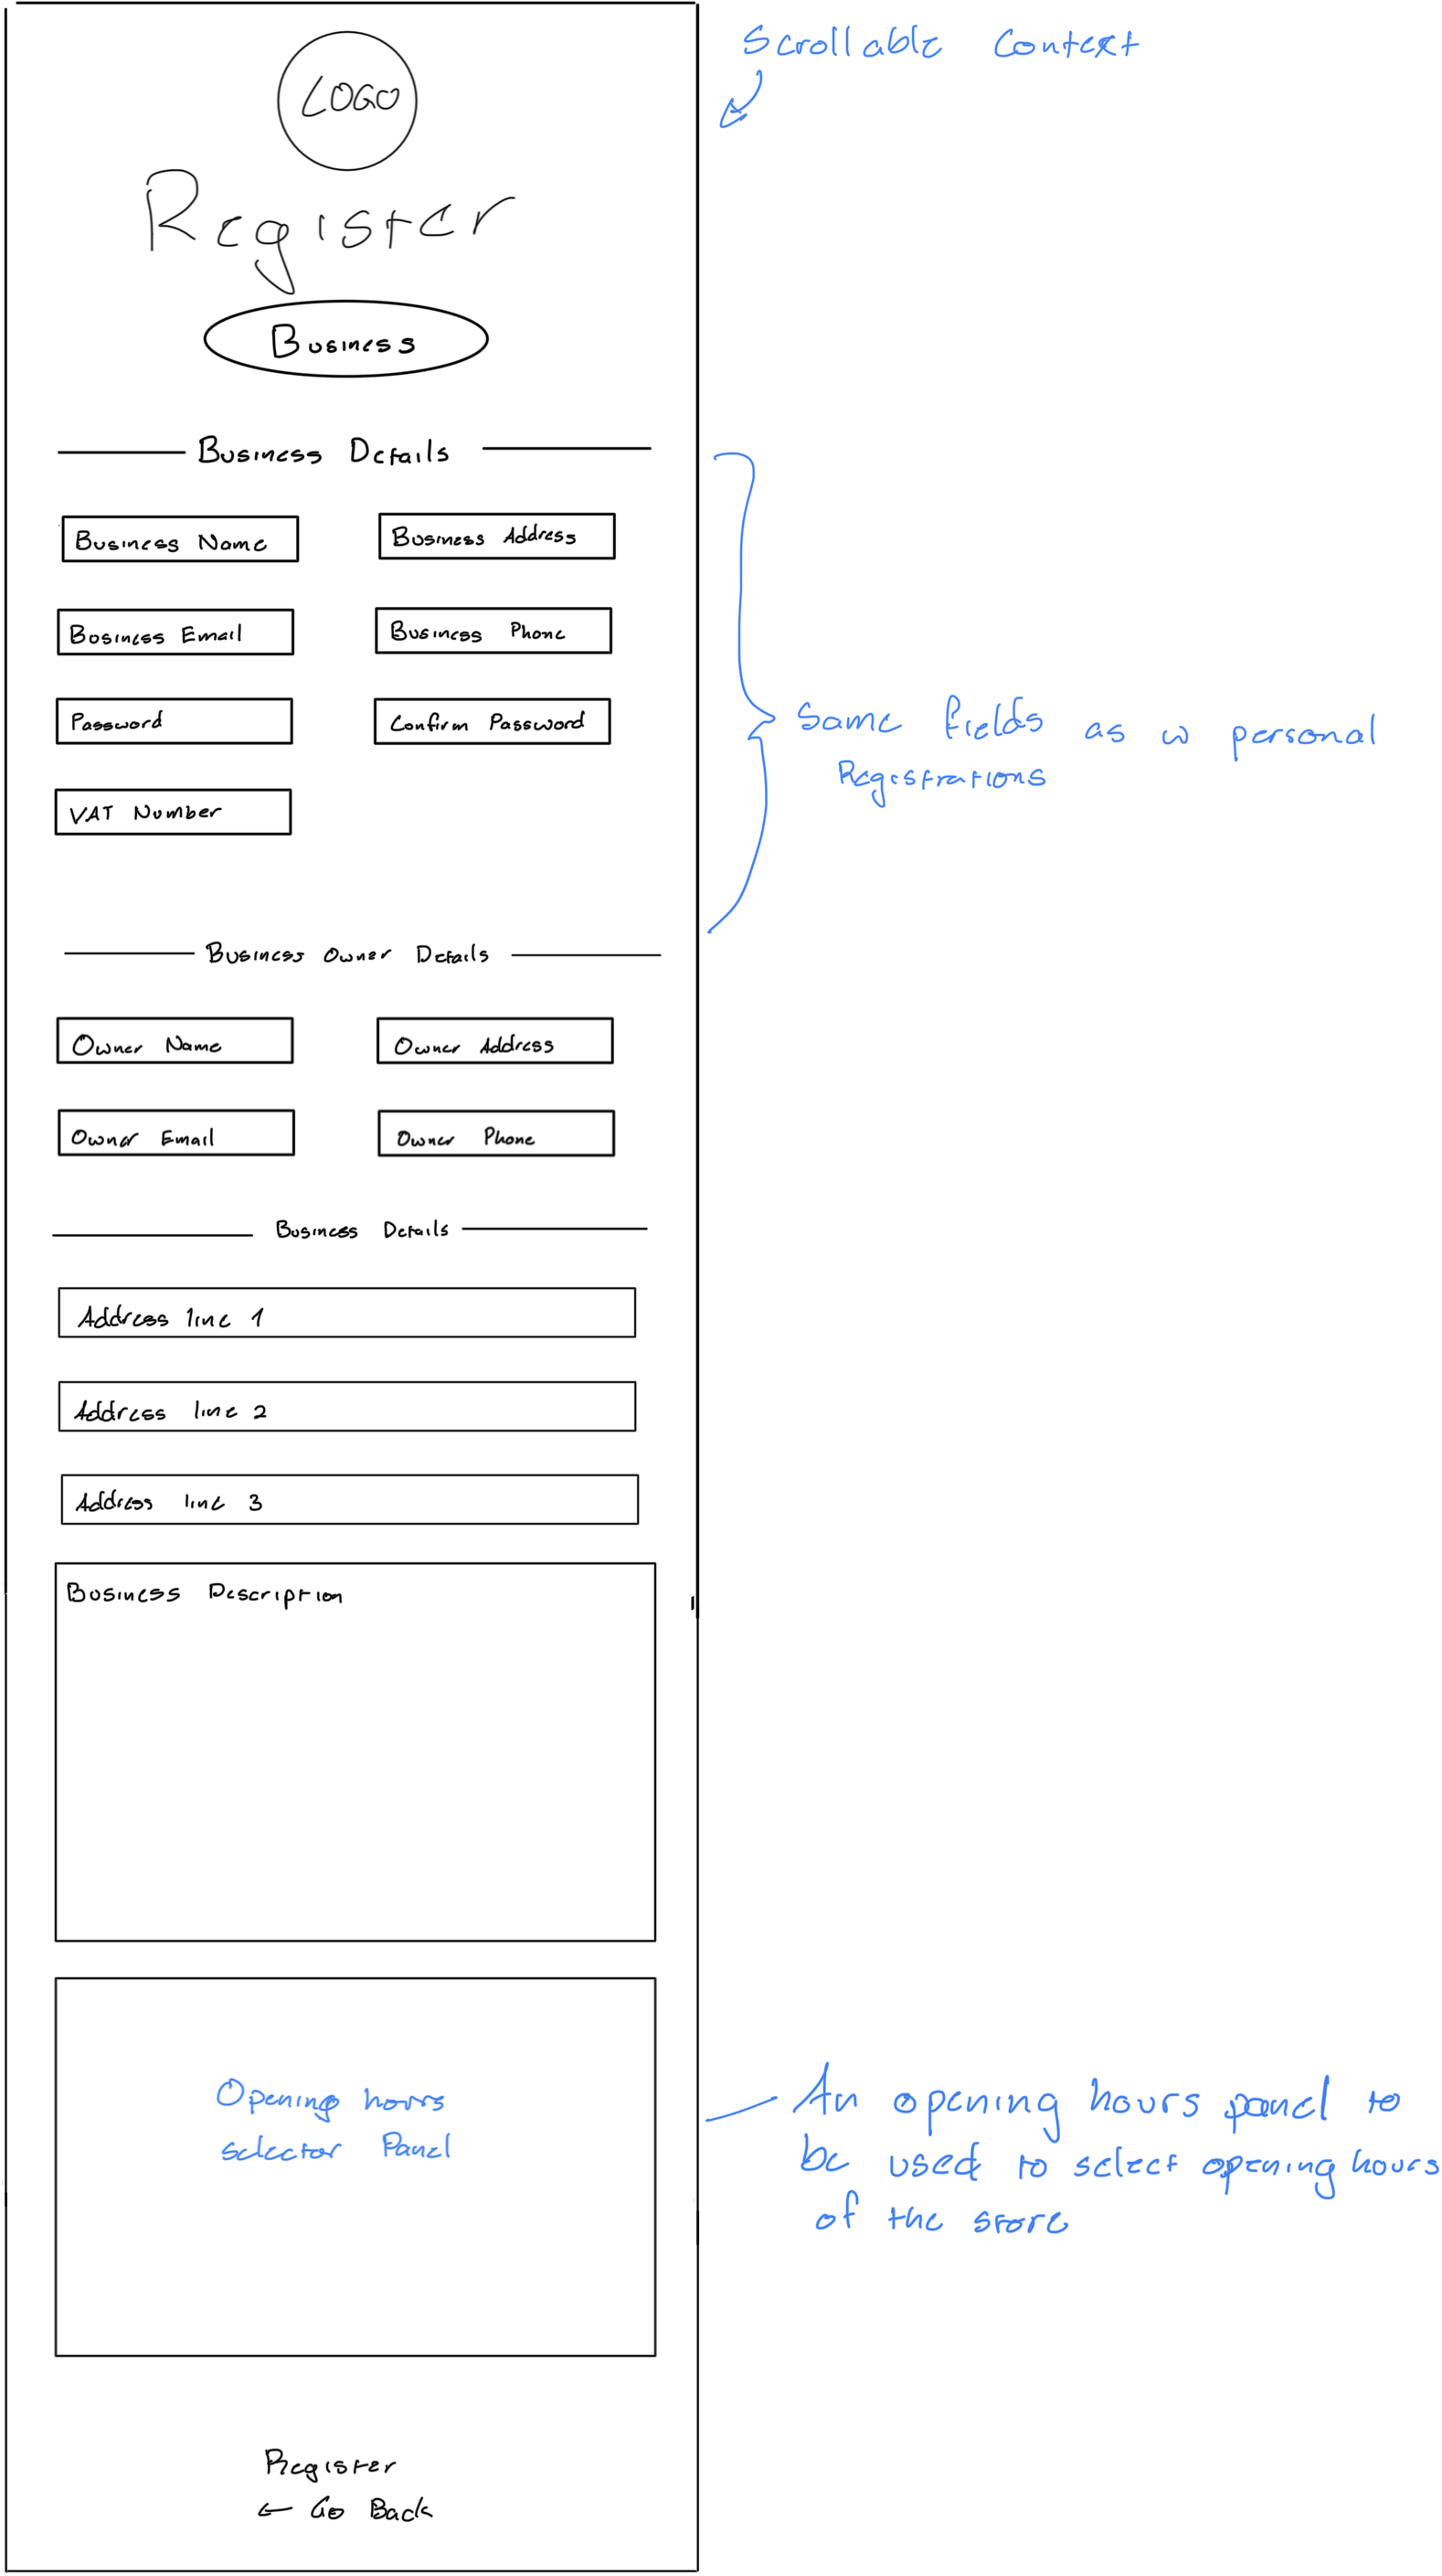 LOGO
Scrollable Context
Register
Business
Business Details
Business Name
Business Address
Business Email
Business Phone
Password
Confirm Password
VAT Number
Same fields as w personal
Registrations
Business Owner Details
Owner Name
Owner Address
Owner Email
Owner Phone
Business Details
Address line 1
Address line 2
Address line 3
Business Description
Opening hours
selector Panel
An opening hours panel to
be used to select opening hours
of the store
Register
← Go Back